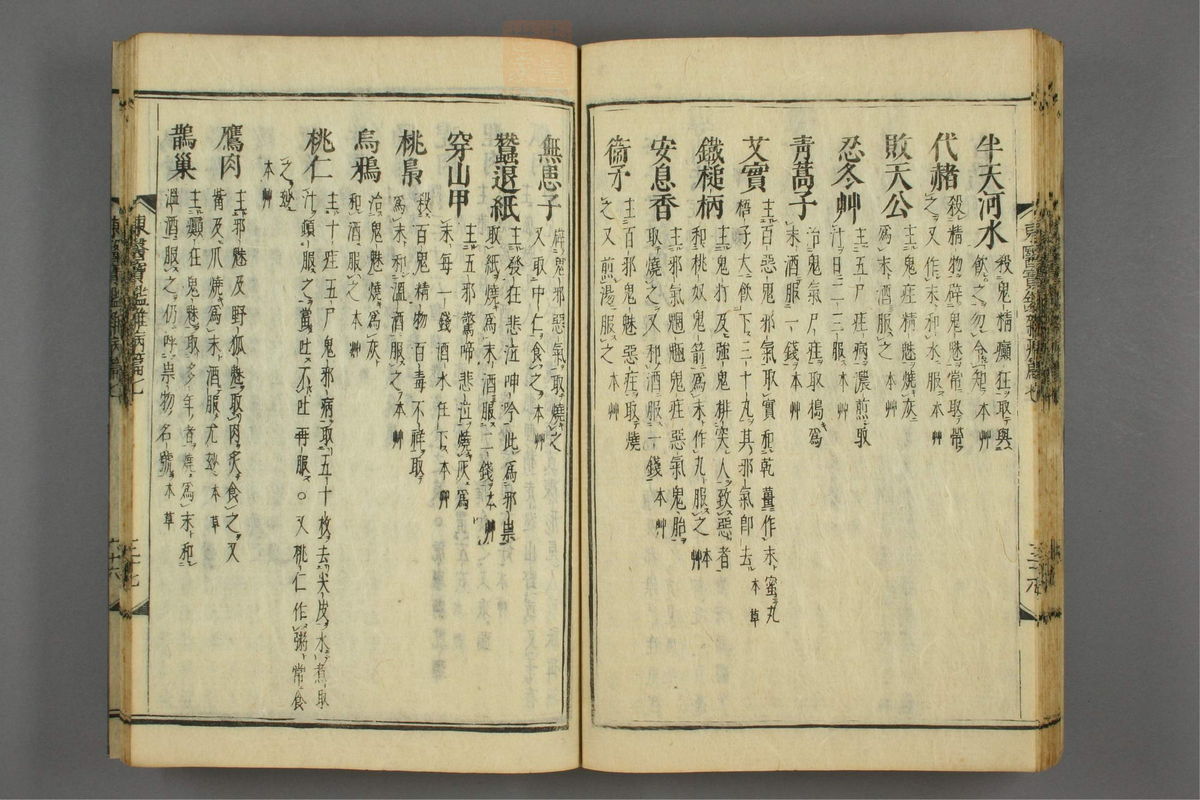 半天河水 殺鬼精癲狂取與
飲之勿令知本艸
代赭 殺精物辟鬼魅常取帶
之又作末和水服本艸
敗天公 主鬼疰精魅燒灰
爲末酒服之本艸
忍冬艸 主五尸疰病濃煎取
汁日二三服本艸
靑蒿子 治鬼氣尸疰取擣爲
末酒服一錢本艸
艾實 主百惡鬼邪氣取實和乾薑作末蜜丸
梧子大飮下三十丸其邪氣卽去本草
鐵槌柄 主鬼打及强鬼排突人致惡者
和桃奴鬼箭爲末作丸服之本艸
安息香 主邪氣魍魎鬼疰惡氣鬼胎
取燒之又和酒服一錢本艸
衞矛 主百邪鬼魅惡疰取燒
之又煎湯服
無患子 辟鬼邪惡氣取燒之
又取中仁食之本艸
蠶退紙 主發狂悲泣呻吟此爲邪祟
取紙燒爲末酒服二錢本艸
穿山甲 主五邪驚啼悲泣燒灰爲
末每一錢酒水任下本艸
桃梟 殺百鬼精物百毒不祥取
爲末和溫酒服之本艸
烏鴉 治鬼魅燒爲灰
和酒服之本艸
桃仁 主十疰五尸鬼邪病取五十枚去尖皮水煮取
汁頓服之當吐不吐再服○又桃仁作粥常食
之妙
本艸
鷹肉 主邪魅及野狐魅取肉炙食之又
觜及爪燒爲末酒服尤妙本草
鵲巢 主癲狂鬼魅取多年者燒爲末和
溫酒服之仍呼祟物名號本草
東醫寶鑑雜病篇七